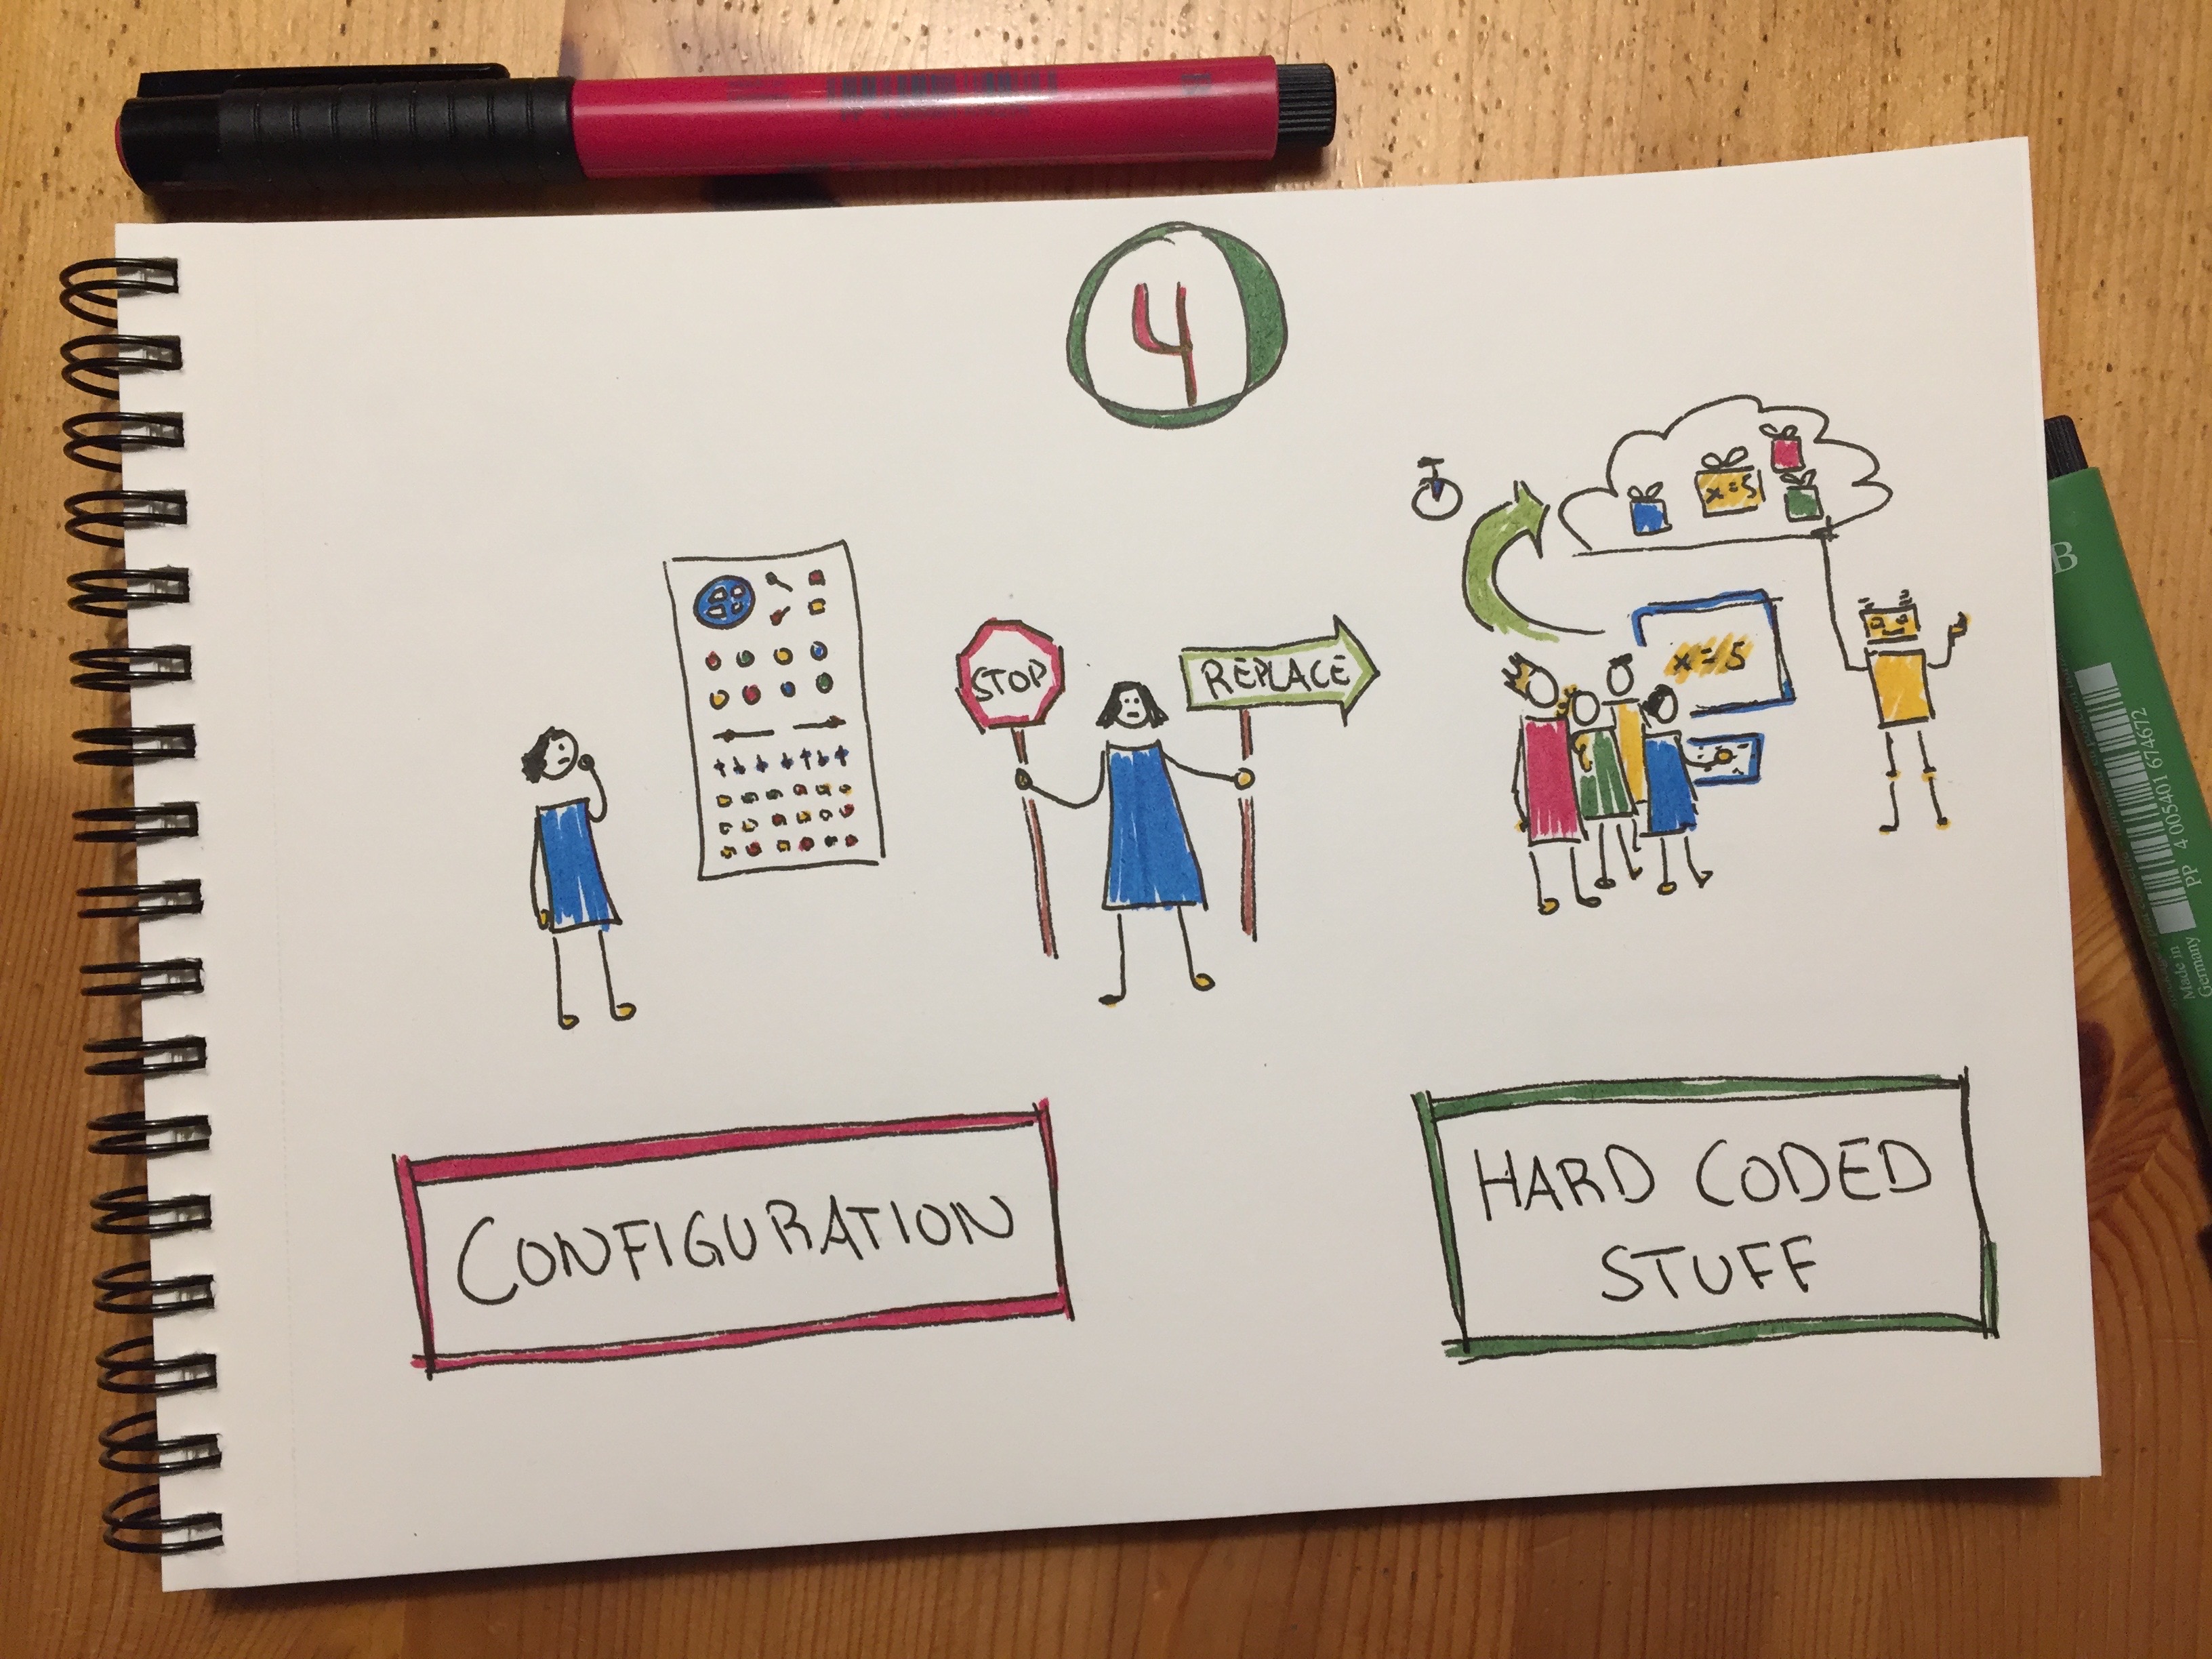 4
x=5
STOP
REPLACE
x=5
CONFIGURATION
HARD CODED
STUFF
B
PP 4 005401 674672
Made in
Germany